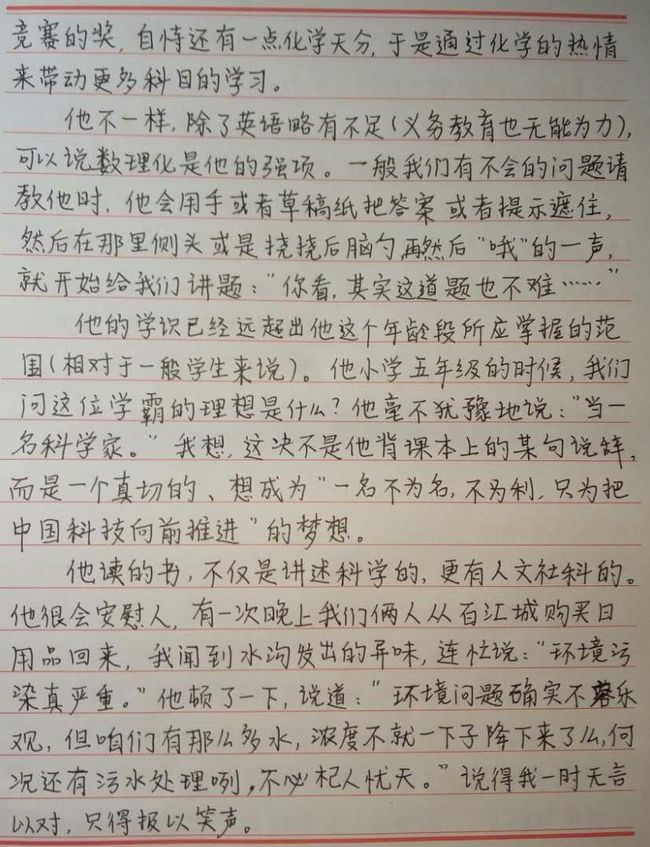 竞赛的奖，自恃还有一点化学天分，于是通过化学的热情
来带动更多科目的学习。
他不一样，除了英语略有不足(义务教育也无能为力)，
可以说数理化是他的强项。一般我们有不会的问题请
教他时，他会用手或者草稿纸把答案或者提示遮住，
然后在那里侧头或是挠挠后脑勺，再然后“哦”的一声，
就开始给我们讲题：“你看，其实这道题也不难……”
他的学识已经远超出他这个年龄段所应掌握的范
围(相对于一般学生来说)。他小学五年级的时候，我们
问这位学霸的理想是什么？他毫不犹豫地说：“当一
名科学家。”我想，这决不是他背课本上的某句说辞，
而是一个真切的、想成为“一名不为名，不为利，只为把
中国科技向前推进”的梦想。
他读的书，不仅是讲述科学的，更有人文社科的。
他很会安慰人，有一次晚上我们俩人从百江城购买日
用品回来，我闻到水沟发出的异味，连忙说：“环境污
染真严重。”他顿了一下，说道：“环境问题确实不容乐
观，但咱们有那么多水，浓度不就一下子降下来了么，何
况还有污水处理咧，不必杞人忧天。”说得我一时无言
以对，只得报以笑声。